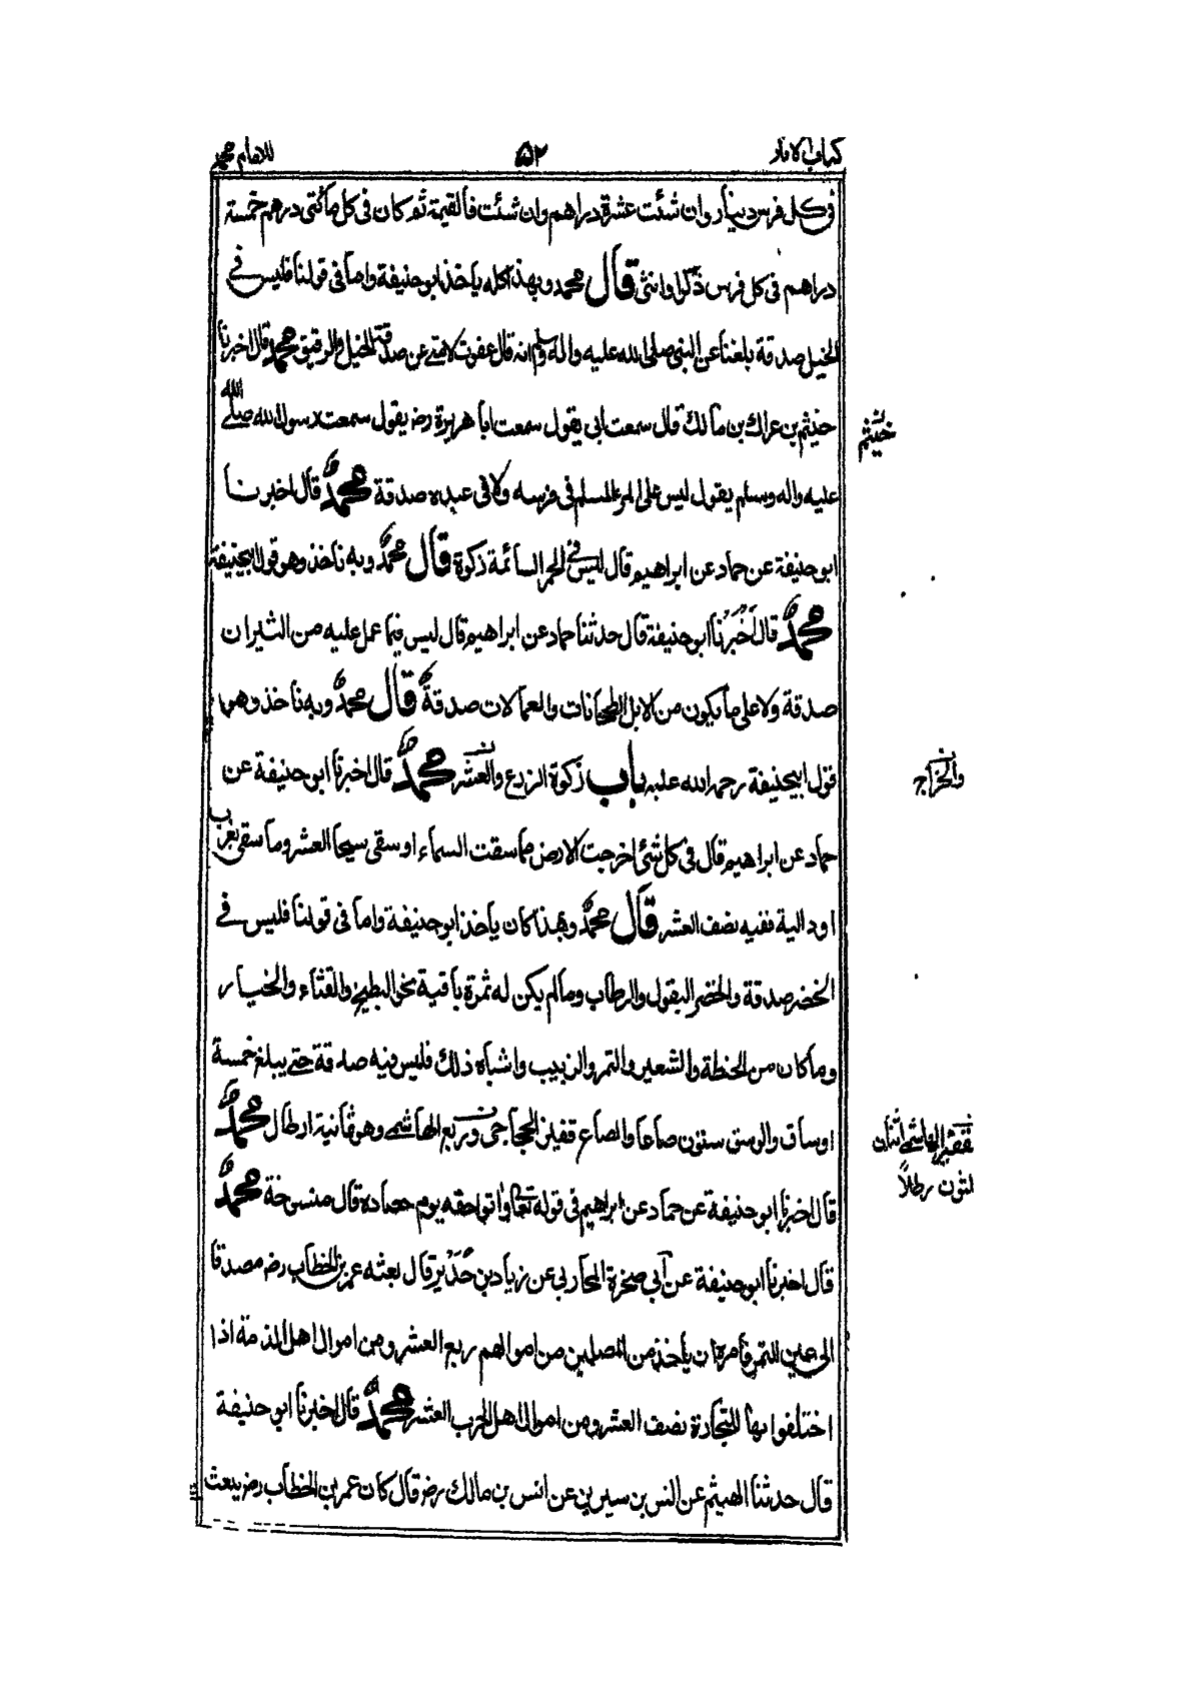 كتاب الاثار ٥٢ للامام محمد
فى كل فرس دينار وان شئت عشرة دراهم وان شئت فالقيمة ثم كان فى كل مائتى درهم خمسة
دراهم فى كل فرس ذكرا وانثى قال محمد وبهذا كله ياخذ ابو حنيفة واما فى قولنا فليس فے
الخيل صدقة بلغنا عن النبى صلى الله عليه واله وسلم انه قال عفوت لامتے عن صدقة الخيل والرقيق محمد قال اخبرنا
خيثم بن عراك بن مالك قال سمعت ابى يقول سمعت ابا هريرة رضـ يقول سمعت رسول الله صلے الله
خيثم
عليه واله وسلم يقول ليس على المرء المسلم فى فرسه ولا فى عبده صدقة محمدٌ قال اخبرنا
ابو حنيفة عن حماد عن ابراهيم قال ليس فے الحمر السائمة زكوة قال محمدٌ وبه ناخذ وهو قول ابيحنيفة
محمدٌ قال اَخْبَرَنا ابو حنيفة قال حدثنا حماد عن ابراهيم قال ليس فيما عمل عليه من الثيران
صدقة ولا على ما يكون من الابل الطحانات والعمالات صدقةٌ قال محمدٌ وبه ناخذ وهو
قول ابيحنيفة رحمه الله عليه باب زكوة الزرع والعشر محمدٌ قال اخبرنا ابو حنيفة عن
والخراج
حماد عن ابراهيم قال فى كل شئ اخرجت الارض مما سقت السماء او سقى سيحا العشر وما سقى بغرب
او دالية ففيه نصف العشر قال محمدٌ وبهذا كان ياخذ ابو حنيفة واما فى قولنا فليس فے
الخضر صدقة والخضر البقول والرطاب وما لم يكن له ثمرة باقية نحو البطيخ والقثاء والخيار
وما كان من الحنطة والشعير والتمر والزبيب واشباه ذلك فليس فيه صدقة حتے يبلغ خمسة
اوساق والوسق ستون صاعا والصاع قفيز الحجاجى وربع الهاشمے وهو ثمانية ارطال محمدٌ
فقفيز الهاشمے اثنان
قال اخبرنا ابو حنيفة عن حماد عن ابراهيم فى قوله تعالى واتوا حقه يوم حصاده قال منسوخة محمدٌ
قال اخبرنا ابو حنيفة عن ابي صخرة المحاربى عن زياد بن حُدَيْر قال بعثه عمر بن الخطاب رضـ مصدقا
الى عين التمر فامره ان ياخذ من المصلين من اموالهم ربع العشر ومن اموال اهل الذمة اذا
اختلفوا بها للتجارة نصف العشر ومن اموال اهل الحرب العشر محمدٌ قال اخبرنا ابو حنيفة
قال حدثنا الهيثم عن انس بن سيرين عن انس بن مالك رضـ قال كان عمر بن الخطاب رضـ يبعث